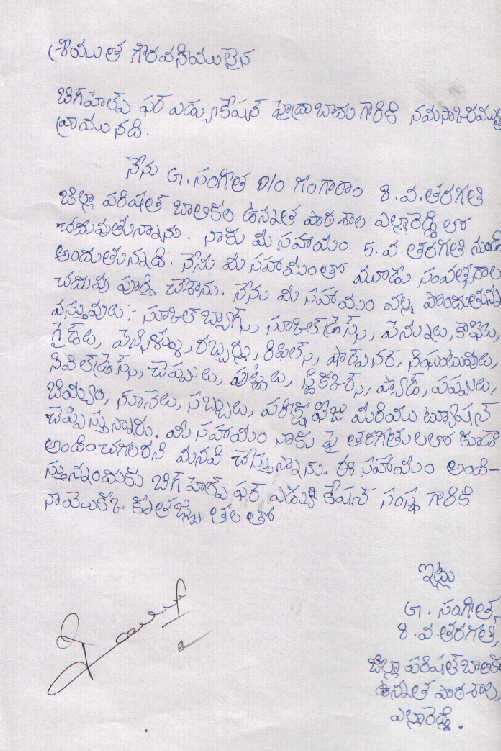 శ్రీయుత గౌరవనీయులైన
బిగ్‌హెల్ప్ ఫర్ ఎడ్యుకేషన్ హైద్రాబాదు గారికి నమస్కారములు
వ్రాయునది.
నేను G. సంగీత D/o గంగారాం 8.వ.తరగతి
జిల్లా పరిషత్ బాలికల ఉన్నత పాఠశాల ఎల్లారెడ్డి లో
చదువుతున్నాను. నాకు మీ సహాయం 5.వ తరగతి నుండి
అందుతున్నది. నేను మీ సహాయంతో మూడు సంవత్సరాల
చదువు పూర్తి చేశాను. నేను మీ సహాయం వల్ల పొందుతున్న
వస్తువులు:- స్కూల్‌బ్యాగ్స్, స్కూల్‌డ్రెస్స్, పెన్నులు, కాపీలు,
గైడ్‌లు, పెన్సిళ్ళు, రబ్బర్లు, షార్పునర్, నోటుబుక్కులు,
సివిల్‌డ్రెస్స్, చెప్పులు, ప్యాడ్,
నూనెలు, సబ్బులు, పరీక్ష ఫీజు మరియు ట్యూషన్
చెప్పిస్తున్నారు. మీ సహాయం నాకు పై తరగతులలో కూడా
అందించగలరని మనవి చేస్తున్నాను. ఈ సహాయం అంది-
స్తున్నందుకు బిగ్ హెల్ప్ ఫర్ ఎడ్యుకేషన్ సంస్థ గారికి
నా కృతజ్ఞతలతో
ఇట్లు
G. సంగీత,
8.వ తరగతి,
జిల్లా పరిషత్ బాలికల
ఉన్నత పాఠశాల,
ఎల్లారెడ్డి.